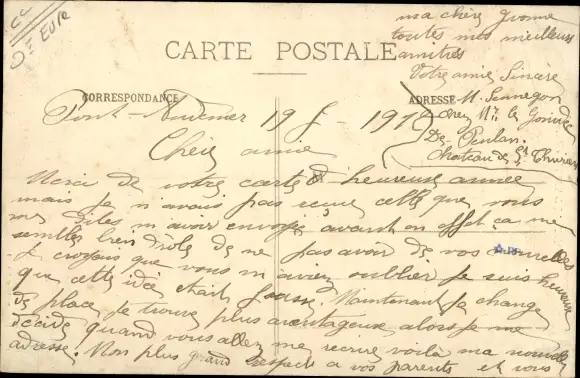 Eure
CARTE POSTALE
CORRESPONDANCE
ADRESSE
Pont-Audemer 19
Chère amie
Merci de votre carte heureuse année
mais je n'avais pas reçue celle que vous
me dites m'avoir envoyée avant en effet ça me
semblez bien drôle de ne pas avoir de vos nouvelles
Je croyais que vous m'aviez oublier Je suis heureuse
que cette idée était fausse. Maintenant Je change
de place Je trouve plus avantageuse alors Je me
décide quand vous allez me recrire voilà ma nouvelle
adresse. Mon plus grand respect a vos parents et vous
ma chère Yvonne
toutes mes meilleurs
amitiés
Votre amie Sincère
M. Sennegon
chez Mr le
De
Chateau de St